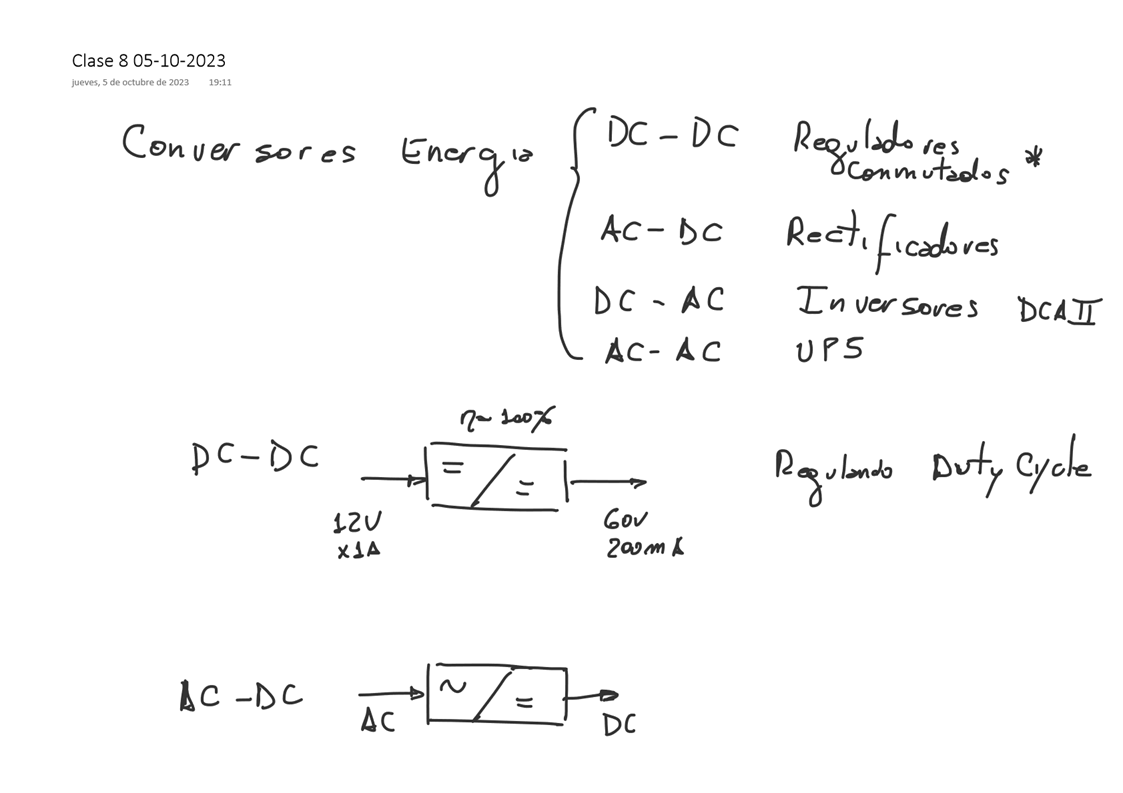 Clase 8 05-10-2023
jueves, 5 de octubre de 2023 19:11
Conversores Energia
DC - DC Reguladores Conmutados *
AC - DC Rectificadores
DC - AC Inversores DCAII
AC - AC UPS
η~100%
DC - DC = / = Regulando Duty Cycle
12V 60V
x1A 200mA
AC - DC ~ / =
AC DC